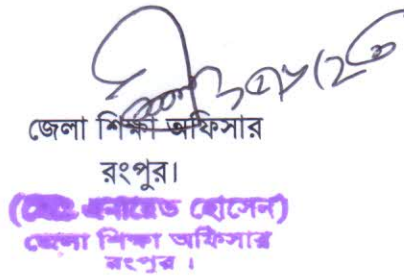 জেলা শিক্ষা অফিসার
রংপুর।
হোসেন)
জেলা শিক্ষা অফিসার
রংপুর।